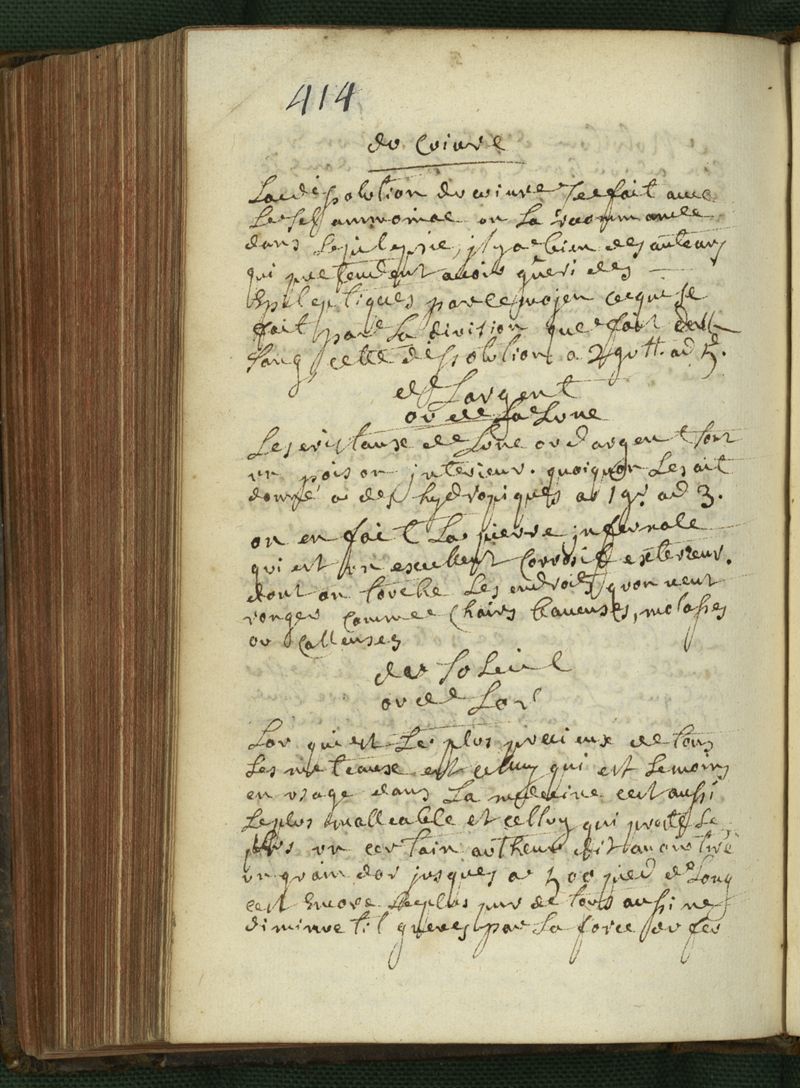 414
du Cuivre
La dissolution du cuivre se fait avec
Le sel ammoniac on La recommande
dans Lepilepsie, il y a bien des auteurs
qui pretendent avoir gueri des
Epileptiques par ce moyen ce qui se
fait par La division que fait dans le
sang cette dissolution a 2 gutt. ad
de Largent
ou de La Lune
Les cristaux de Lune ou dargent sont
un poison interieur. quoiquon Les ait
donné a des hydropiques a 1 gr. ad 3.
on en fait La pierre infernale
qui est un excellent Corrosif exterieur.
dont on touche Les endroits quon veut
ronger Comme Chairs baveuses, molasses
ou Calleuses
du Soleil
ou de Lor
Lor qui est Le plus precieux de tous
Les metaux est celuy qui est Le moins
en usage dans La medecine cest aussi
Le plus malleable et celluy qui prette Le
plus un certain autheur dit avoir tiré
un grain dor jusques a 500 pied de Long
cest Encore Le plus pur de tous aussi ne
diminue til gueres par La force du feu